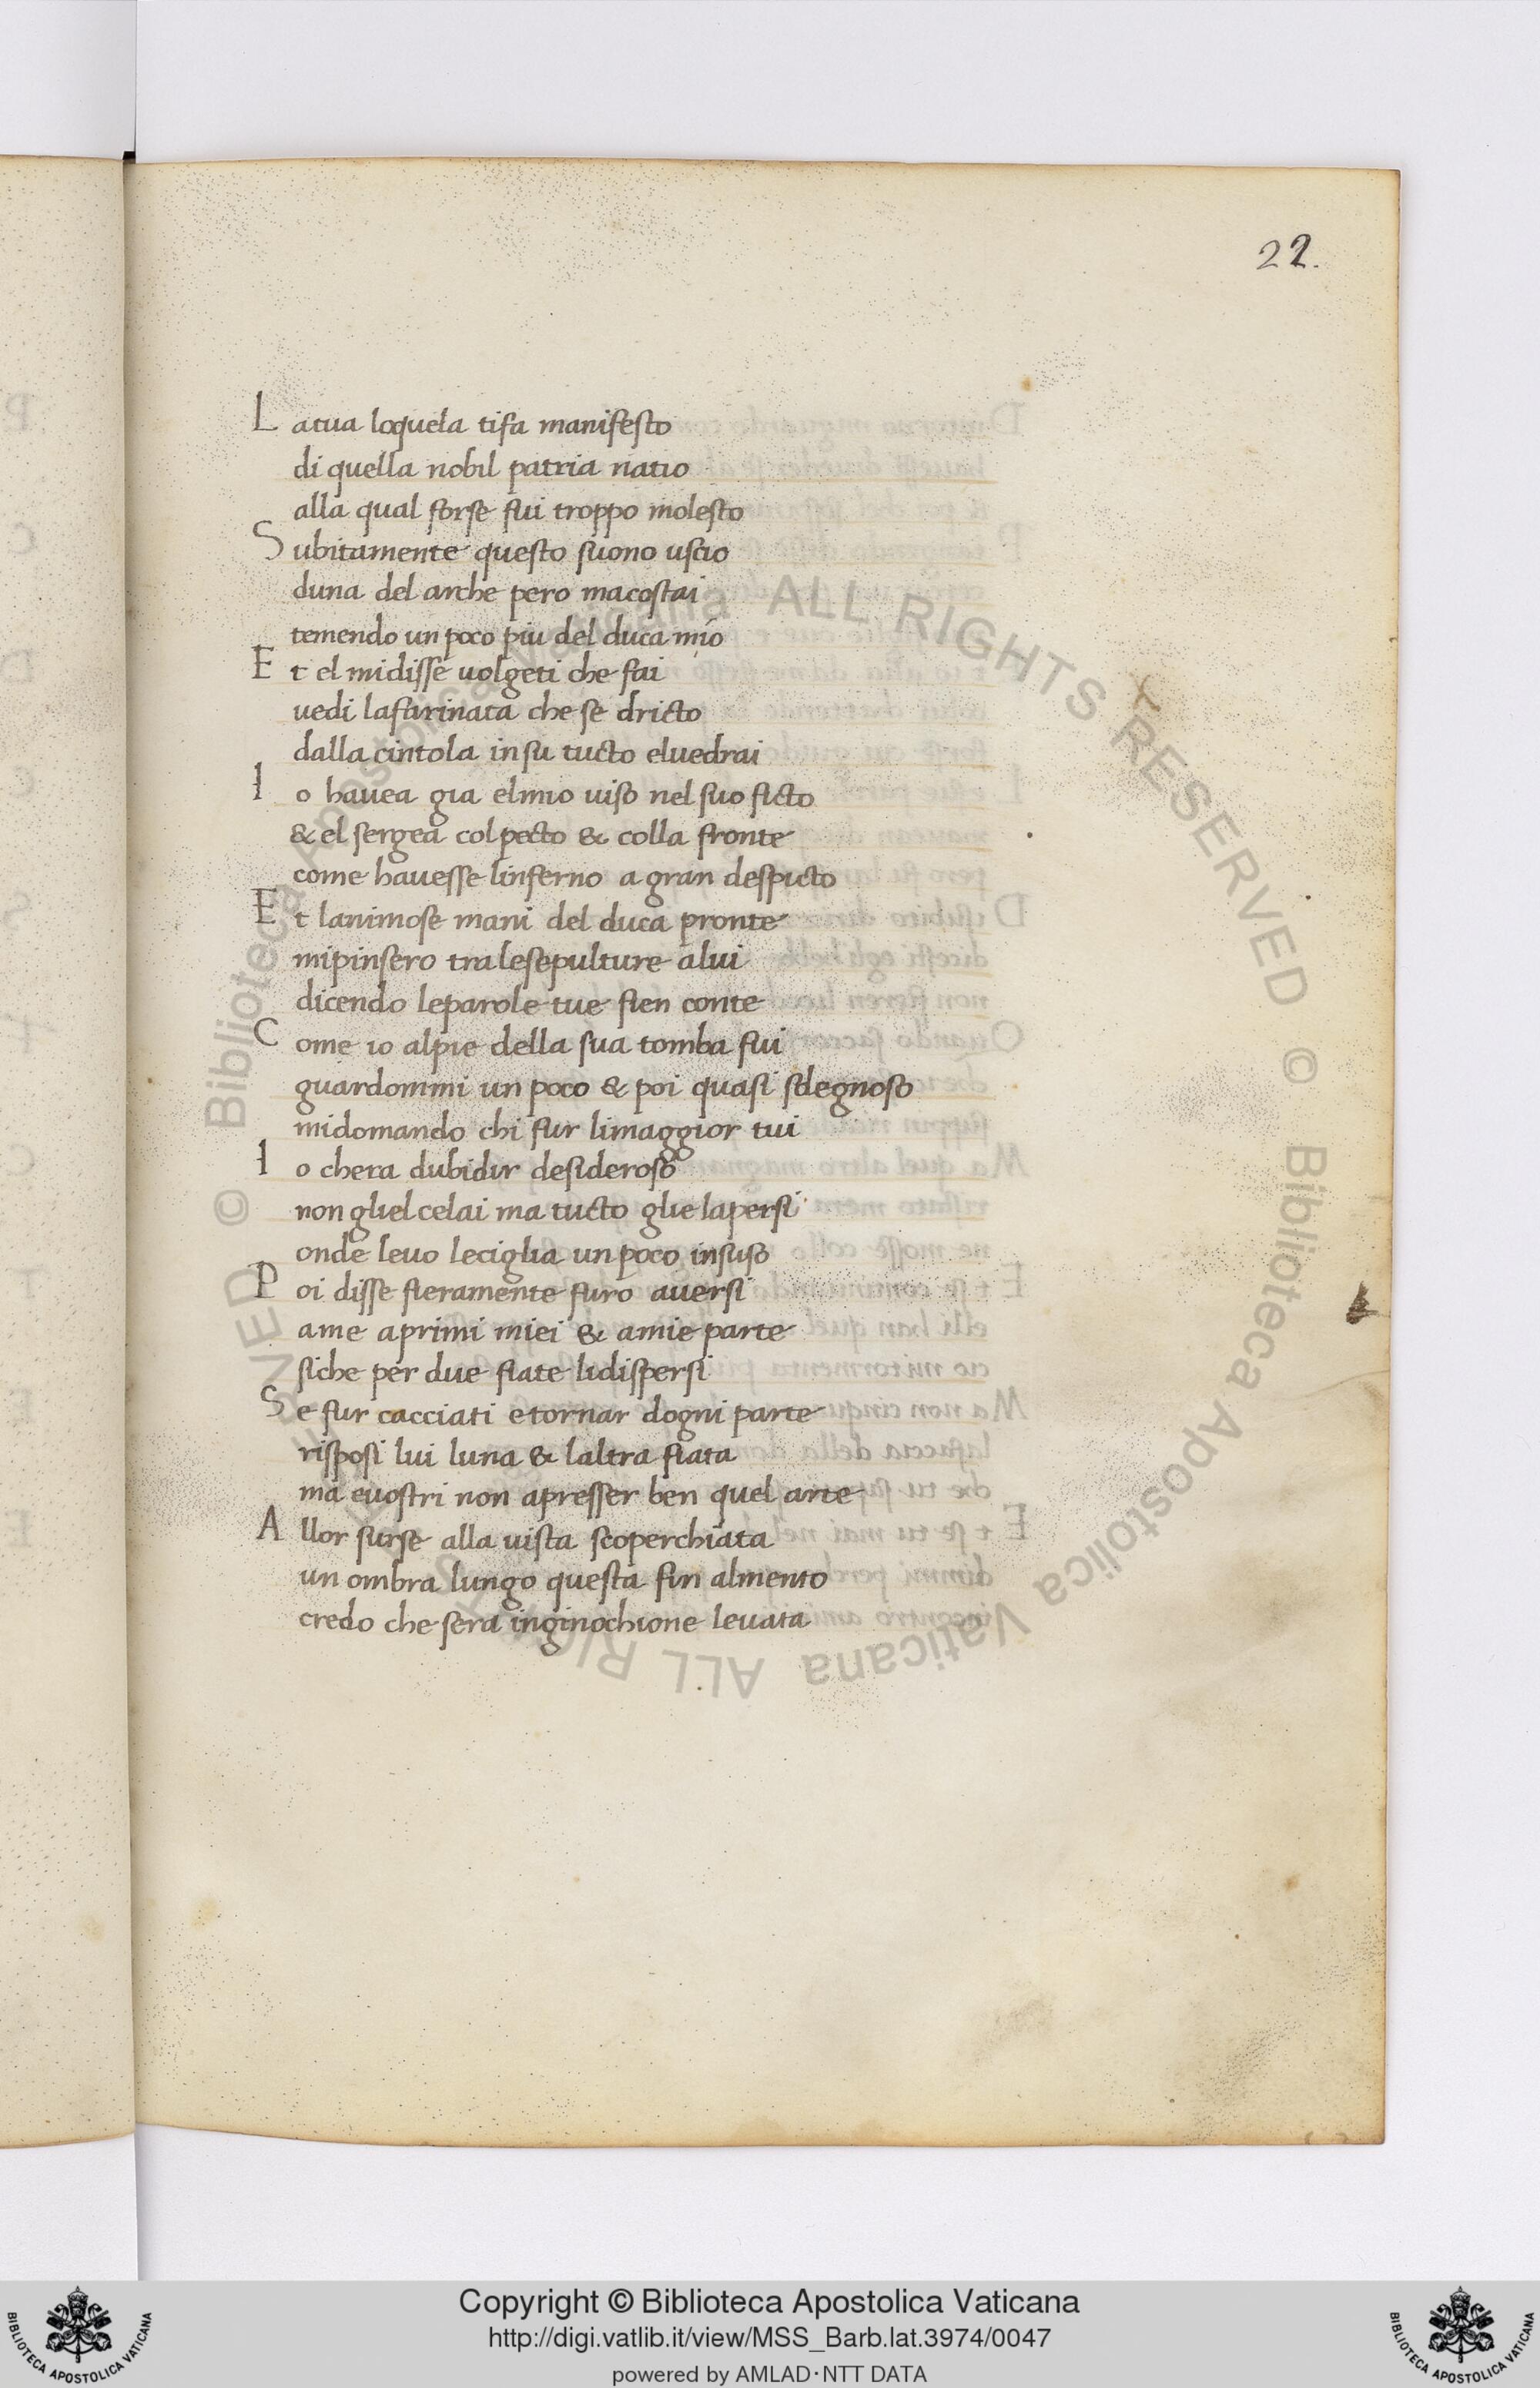 22.
L atua loquela tifa manifesto
di quella nobil patria natio
alla qual forse fui troppo molesto
S ubitamente questo suono uscio
duna del arche pero macostai
temendo un poco piu del duca mio
E t el midisse uolgeti che fai
uedi lafarinata che se dricto
dalla cintola insu tucto eluedrai
I o hauea gia elmio uiso nel suo ficto
& el sergea col pecto & colla fronte
come hauesse linferno a gran despicto
E t lanimose mani del duca pronte
mipinsero tra lesepulture alui
dicendo leparole tue sien conte
C ome io alpie della sua tomba fui
guardommi un poco & poi quasi sdegnoso
midomando chi fur limaggior tui
I o chera dubidir desideroso
non gliel celai ma tucto glie lapersi
onde leuo leciglia un poco insuso
P oi disse fieramente furo auersi
ame aprimi miei & amie parte
siche per due fiate lidispersi
S e fur cacciati etornar dogni parte
risposi lui luna & laltra fiata
ma euostri non apresser ben quel arte
A llor surse alla uista scoperchiata
un ombra lungo questa fin almento
credo che sera inginochione leuata
© Biblioteca Apostolica Vaticana ALL RIGHTS RESERVED © Biblioteca Apostolica Vaticana ALL RIGHTS RESERVED
Copyright © Biblioteca Apostolica Vaticana
http://digi.vatlib.it/view/MSS_Barb.lat.3974/0047
powered by AMLAD·NTT DATA
BIBLIOTECA APOSTOLICA VATICANA
BIBLIOTECA APOSTOLICA VATICANA